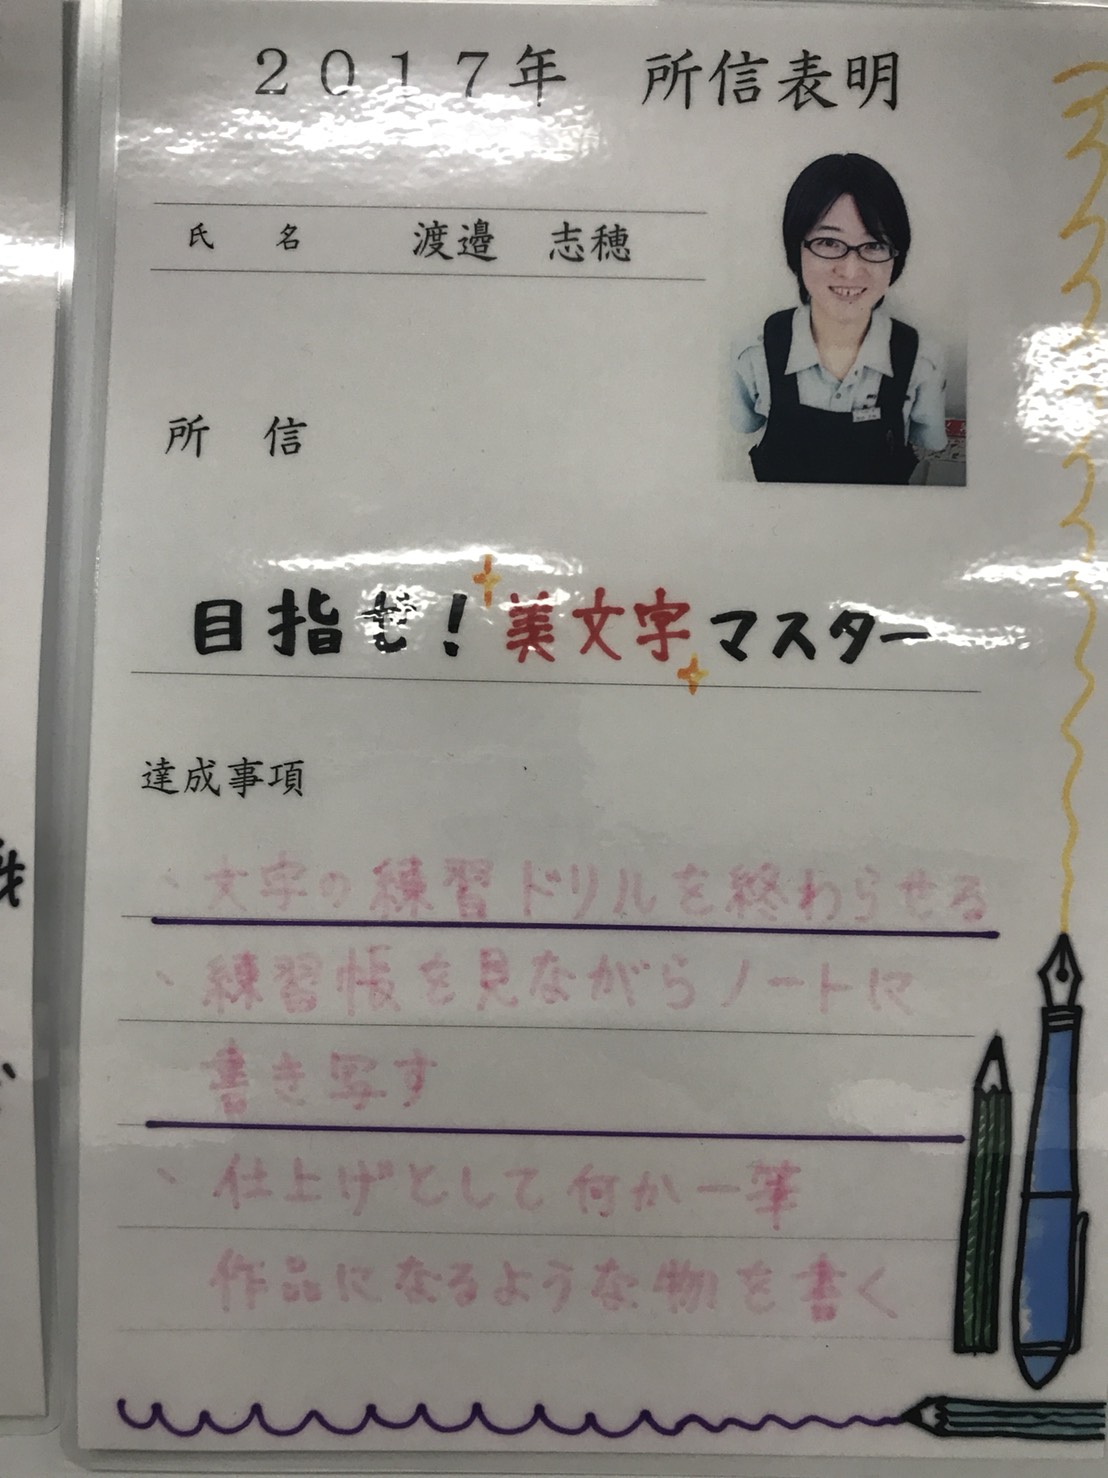 2017年 所信表明
氏 名 渡邉 志穂
所 信
目指せ!美文字マスター
達成事項
、文字の練習ドリルを終わらせる
、練習帳を見ながらノートに
書き写す
、仕上げとして何か一筆
作品になるような物を書く